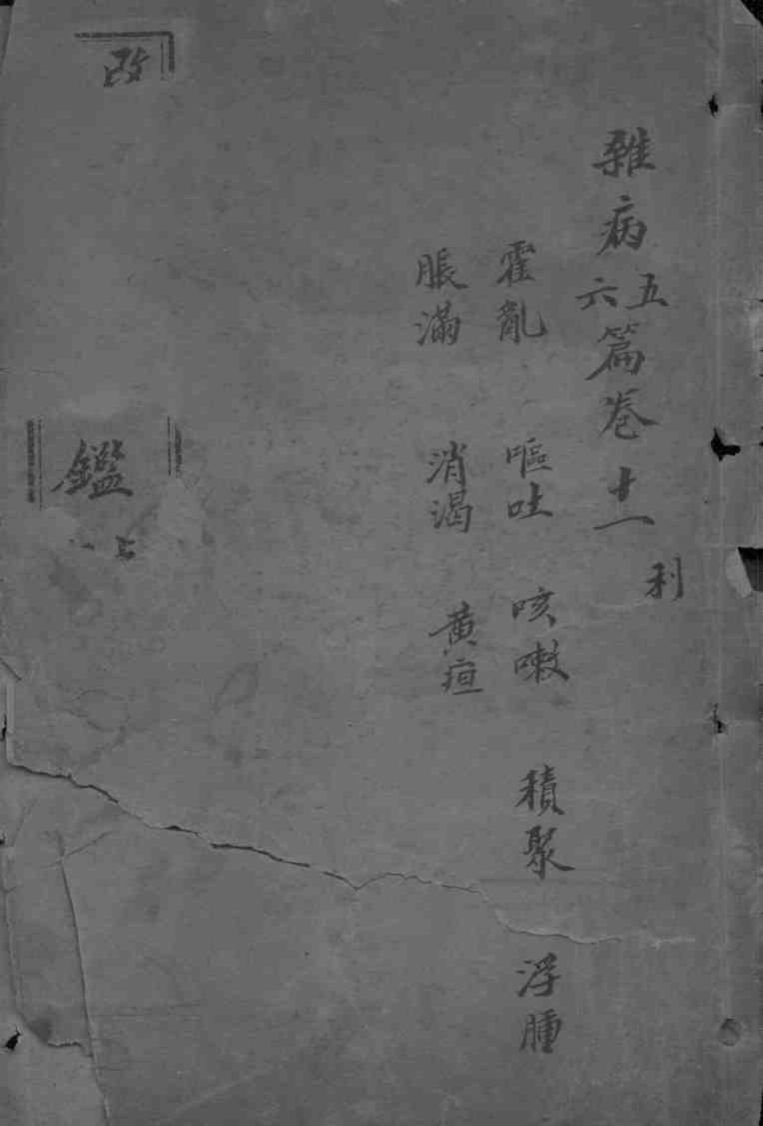 利
雜病五六篇卷十一
霍亂 嘔吐 咳嗽 積聚 浮腫
脹滿 消渴 黃疸
鑑